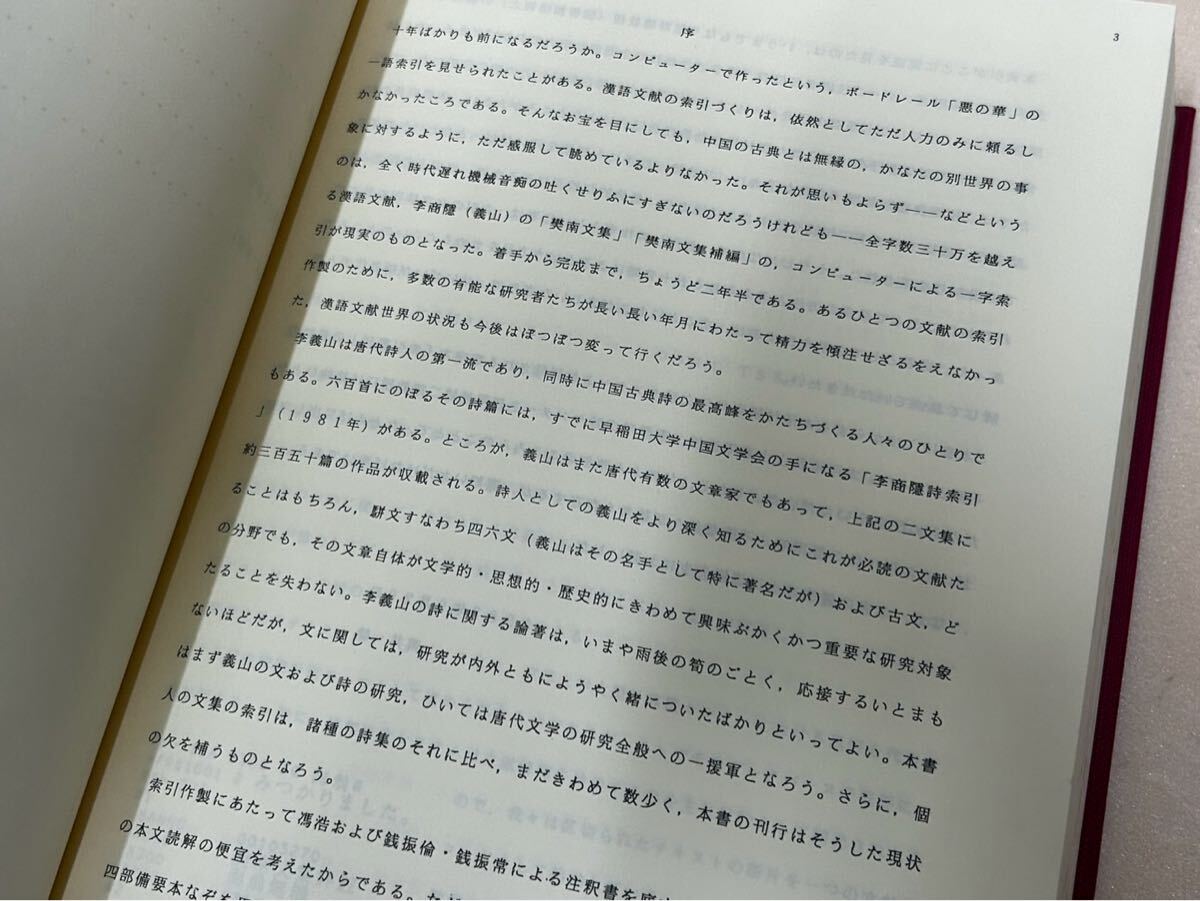 序
3
十年ばかりも前になるだろうか。コンピューターで作ったという，ボードレール「悪の華」の
一語索引を見せられたことがある。漢語文献の索引づくりは，依然としてただ人力のみに頼るし
かなかったころである。そんなお宝を目にしても，中国の古典とは無縁の，かなたの別世界の事
象に対するように，ただ感服して眺めているよりなかった。それが思いもよらず――などという
のは，全く時代遅れ機械音痴の吐くせりふにすぎないのだろうけれども――全字数三十万を越え
る漢語文献，李商隠（義山）の「樊南文集」「樊南文集補編」の，コンピューターによる一字索
引が現実のものとなった。着手から完成まで，ちょうど二年半である。あるひとつの文献の索引
作製のために，多数の有能な研究者たちが長い長い年月にわたって精力を傾注せざるをえなかっ
た，漢語文献世界の状況も今後はぼつぼつ変って行くだろう。
李義山は唐代詩人の第一流であり，同時に中国古典詩の最高峰をかたちづくる人々のひとりで
もある。六百首にのぼるその詩篇には，すでに早稲田大学中国文学会の手になる「李商隠詩索引
」（1981年）がある。ところが，義山はまた唐代有数の文章家でもあって，上記の二文集に
約三百五十篇の作品が収載される。詩人としての義山をより深く知るためにこれが必読の文献た
ることはもちろん，駢文すなわち四六文（義山はその名手として特に著名だが）および古文，ど
の分野でも，その文章自体が文学的・思想的・歴史的にきわめて興味ぶかくかつ重要な研究対象
たることを失わない。李義山の詩に関する論著は，いまや雨後の筍のごとく，応接するいとまも
ないほどだが，文に関しては，研究が内外ともにようやく緒についたばかりといってよい。本書
はまず義山の文および詩の研究，ひいては唐代文学の研究全般への一援軍となろう。さらに，個
人の文集の索引は，諸種の詩集のそれに比べ，まだきわめて数少く，本書の刊行はそうした現状
の欠を補うものとなろう。
索引作製にあたって馮浩および銭振倫・銭振常による注釈書を底
の本文読解の便宜を考えたからである。ただ
四部備要本なぞを